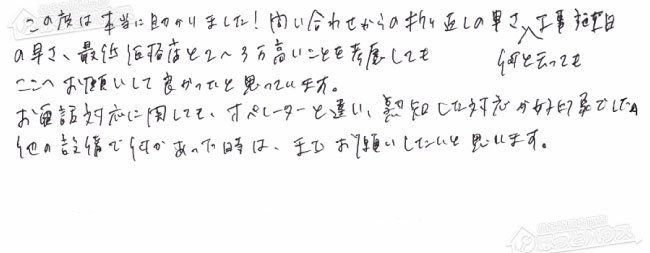 この度は本当に助かりました!問い合わせからの折り返しの早さ、工事施工日
何と云っても
の早さ、最低価格店と2〜3万高いことを考慮しても
ここへお願いして良かったと思っています。
お電話対応に関しても、オペレーターと違い、熟知した対応が好印象でした。
他の設備で何かあった時は、またお願いしたいと思います。